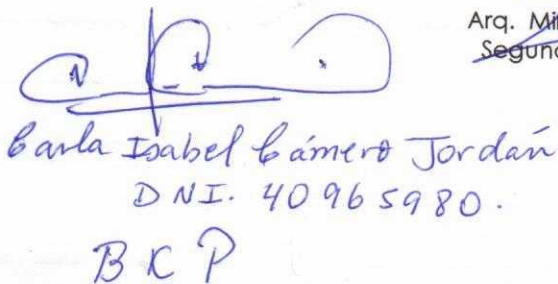 Arq.
Segund
Carla Isabel Cámero Jordán
DNI. 40965980.
BKP